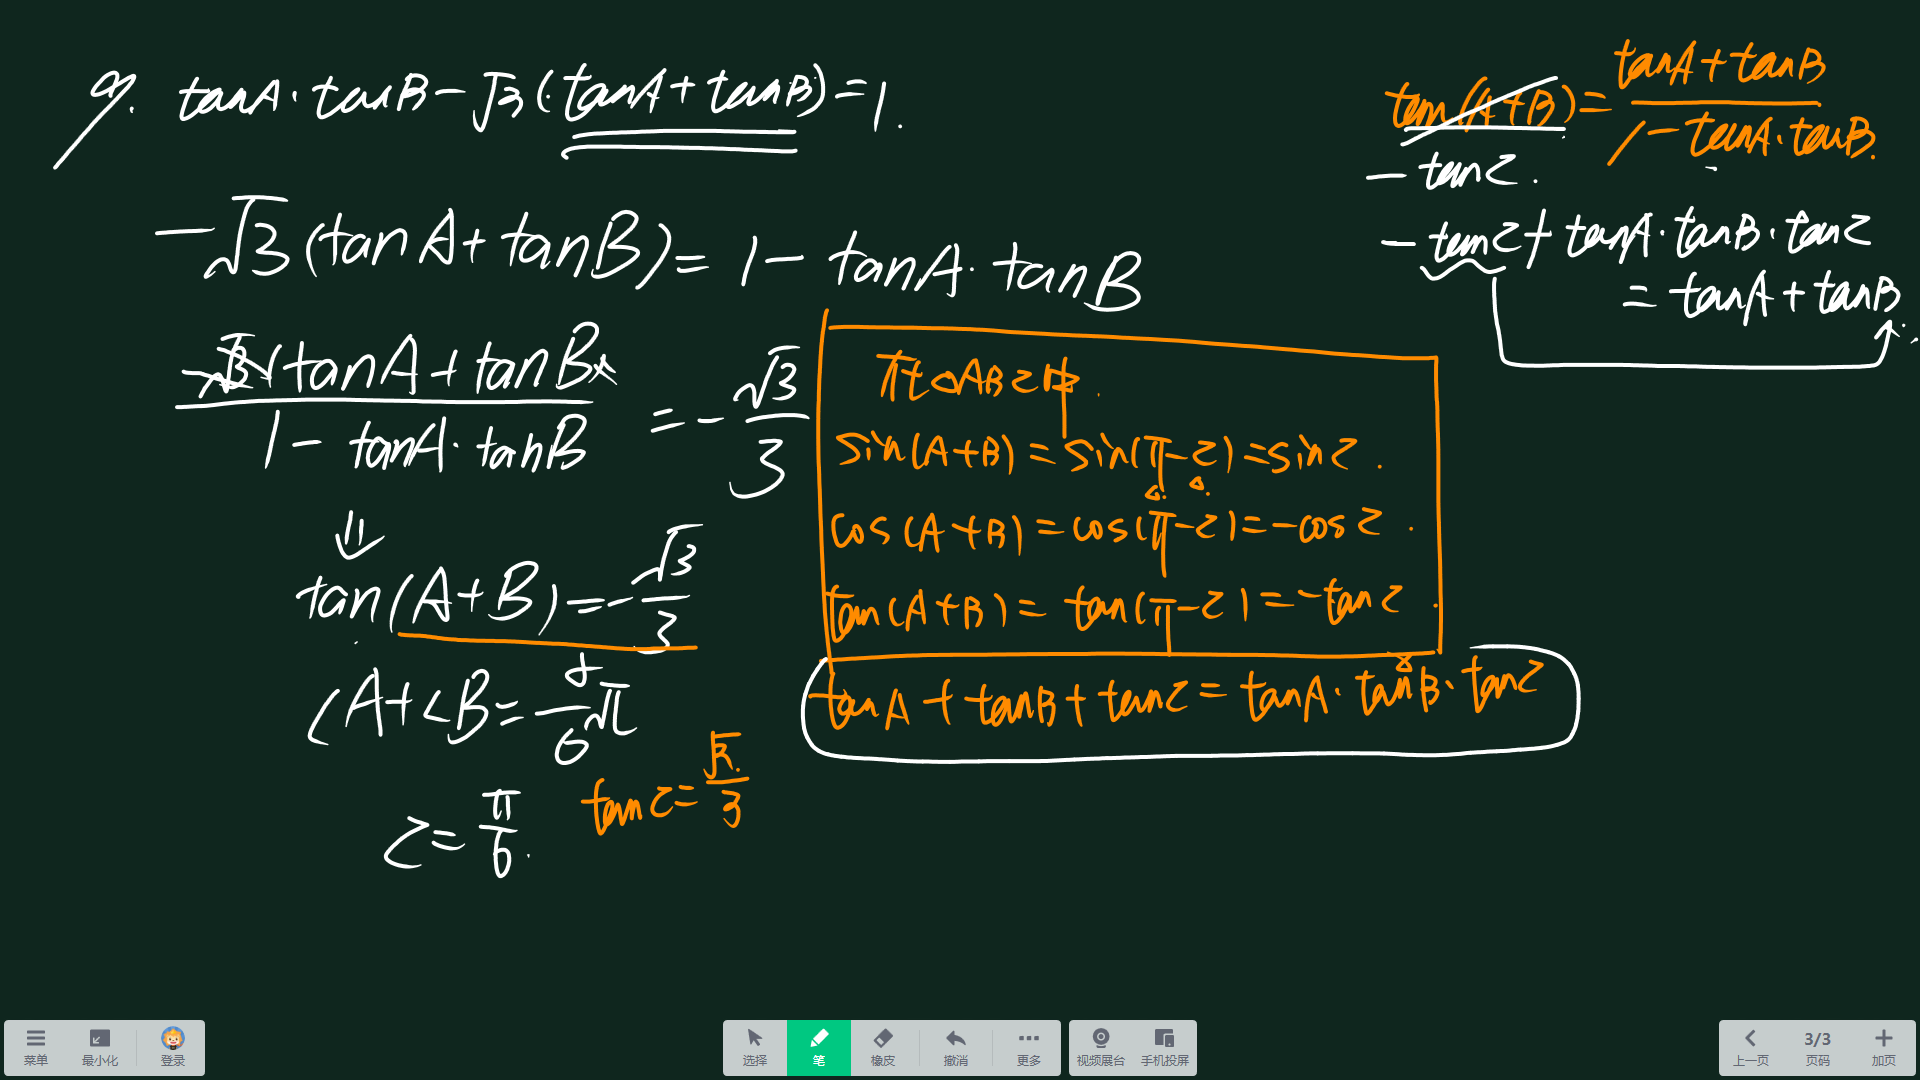 9. tanA·tanB-√3(tanA+tanB)=1.
-√3(tanA+tanB)=1-tanA·tanB
-√3(tanA+tanB)/(1-tanA·tanB)=-√3/3
⇓
tan(A+B)=-√3/3
∠A+∠B=5/6π
C=π/6.
tanC=√3/3
在△ABC中.
sin(A+B)=sin(π-C)=sinC.
cos(A+B)=cos(π-C)=-cosC.
tan(A+B)=tan(π-C)=-tanC.
tanA+tanB+tanC=tanA·tanB·tanC
tan(A+B)=(tanA+tanB)/(1-tanA·tanB)
-tanC.
-tanC+tanA·tanB·tanC
=tanA+tanB.
菜单 最小化 登录 选择 笔 橡皮 撤消 更多 视频展台 手机投屏 上一页 3/3 页码 加页